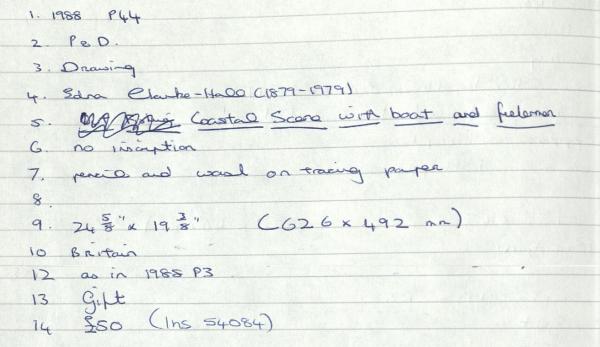 1. 1988 P44
2. P & D.
3. Drawing
4. Edna Clarke-Hall (1879-1979)
5. Coastal Scene with boat and
6. no insciption
7. pencil and on tracing paper
8.
9. 24 5/8" x 19 3/8" (626 x 492 mm)
10 Britain
12 as in 1988 P3
13 Gift
14 £50 (Ins 54084)